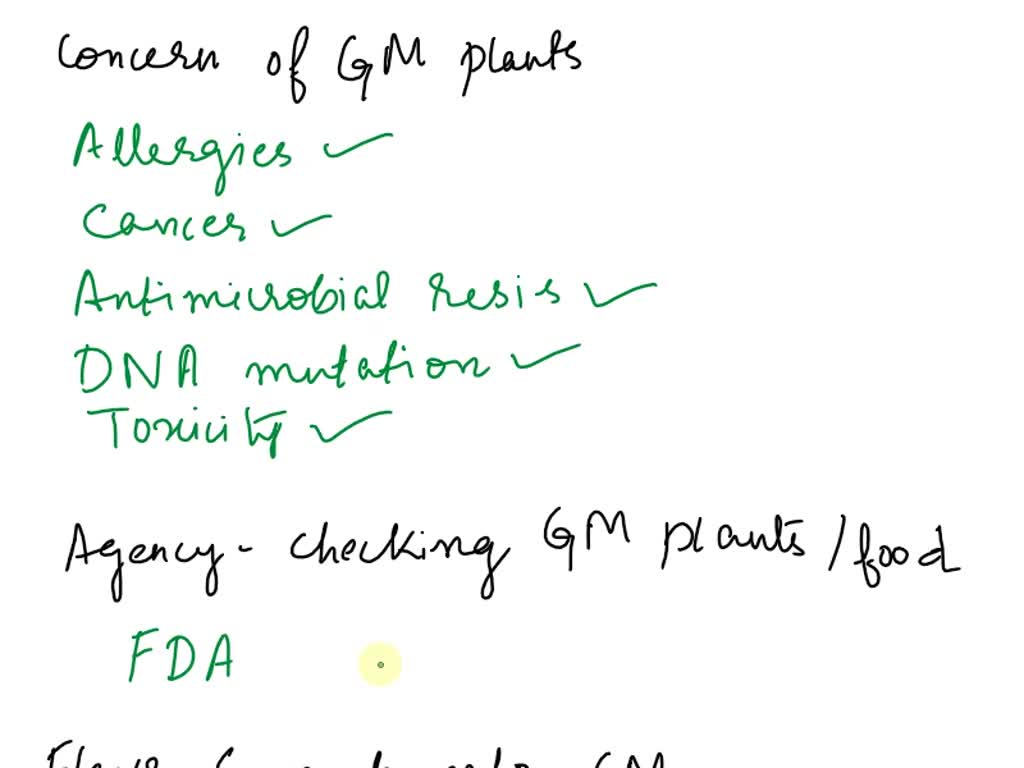 Concern of GM plants
Allergies ✓
Cancer ✓
Antimicrobial resis ✓
DNA mutation ✓
Toxicity ✓
Agency - checking GM plants / food
FDA
GM